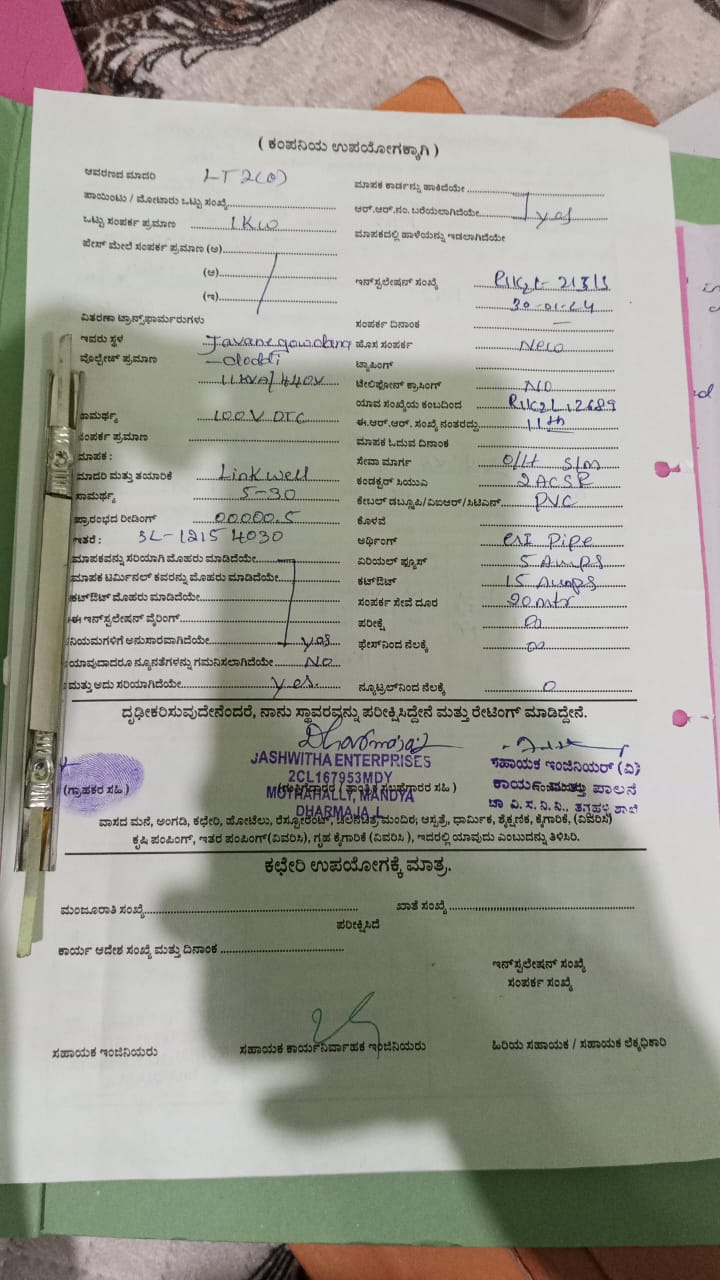 ( ಕಂಪನಿಯ ಉಪಯೋಗಕ್ಕಾಗಿ )
ಆವರಣದ ಮಾದರಿ LT2(a)
ಮಾಪಕ ಕಾರ್ಡನ್ನು ಹಾಕಿದೆಯೇ
ಪಾಯಿಂಟು / ಮೋಟಾರು ಒಟ್ಟು ಸಂಖ್ಯೆ
ಆರ್.ಆರ್.ನಂ. ಬರೆಯಲಾಗಿದೆಯೇ yes
ಒಟ್ಟು ಸಂಪರ್ಕ ಪ್ರಮಾಣ 1KW
ಮಾಪಕದಲ್ಲಿ ಹಾಳೆಯನ್ನು ಇಡಲಾಗಿದೆಯೇ
ಪೇಸ್ ಮೇಲೆ ಸಂಪರ್ಕ ಪ್ರಮಾಣ (ಅ)
(ಆ)
(ಇ)
ಇನ್‌ಸ್ಟಲೇಷನ್ ಸಂಖ್ಯೆ
30-01-24
ವಿತರಣಾ ಟ್ರಾನ್ಸ್‌ಫಾರ್ಮರುಗಳು
ಸಂಪರ್ಕ ದಿನಾಂಕ —
ಇವರು ಸ್ಥಳ Javanegowdana
ಹೊಸ ಸಂಪರ್ಕ New
ವೋಲ್ಟೇಜ್ ಪ್ರಮಾಣ -doddi
ಟ್ಯಾಪಿಂಗ್
11KVA/440V
ಟೆಲಿಫೋನ್ ಕ್ರಾಸಿಂಗ್ NO
ಯಾವ ಸಂಖ್ಯೆಯ ಕಂಬದಿಂದ
ಸಾಮರ್ಥ್ಯ
ಈ.ಆರ್.ಆರ್. ಸಂಖ್ಯೆ ನಂತರದ್ದು 11th
ಸಂಪರ್ಕ ಪ್ರಮಾಣ
ಮಾಪಕ ಓದುವ ದಿನಾಂಕ
ಮಾಪಕ :
ಸೇವಾ ಮಾರ್ಗ O/H S/m
ಮಾದರಿ ಮತ್ತು ತಯಾರಿಕೆ Linkwell
ಕಂಡಕ್ಟರ್ ಸಿಯುಎ 2ACSR
ಸಾಮರ್ಥ್ಯ 5-30
ಕೇಬಲ್ ಡಬ್ಲ್ಯೂಪಿ/ವಿಐಆರ್/ಸಿಟಿಎಸ್ PVC
ಪ್ರಾರಂಭದ ರೀಡಿಂಗ್ 00000.5
ಕೊಳವೆ
ಇತರೆ : SL-12154030
ಅರ್ಥಿಂಗ್ GI Pipe
ಮಾಪಕವನ್ನು ಸರಿಯಾಗಿ ಮೊಹರು ಮಾಡಿದೆಯೇ
ಏರಿಯಲ್ ಫ್ಯೂಸ್ 5 Amps
ಮಾಪಕ ಟರ್ಮಿನಲ್ ಕವರನ್ನು ಮೊಹರು ಮಾಡಿದೆಯೇ
ಕಟ್‌ಔಟ್ 15 Amps
ಕಟ್‌ಔಟ್ ಮೊಹರು ಮಾಡಿದೆಯೇ
ಸಂಪರ್ಕ ಸೇವೆ ದೂರ 20mtr
ಈ ಇನ್‌ಸ್ಟಲೇಷನ್ ವೈರಿಂಗ್
ಪರೀಕ್ಷೆ ∞
ನಿಯಮಗಳಿಗೆ ಅನುಸಾರವಾಗಿದೆಯೇ yes
ಫೇಸ್‌ನಿಂದ ನೆಲಕ್ಕೆ ∞
ಯಾವುದಾದರೂ ನ್ಯೂನತೆಗಳನ್ನು ಗಮನಿಸಲಾಗಿದೆಯೇ No
ಮತ್ತು ಅದು ಸರಿಯಾಗಿದೆಯೇ yes.
ನ್ಯೂಟ್ರಲ್‌ನಿಂದ ನೆಲಕ್ಕೆ 0
ದೃಢೀಕರಿಸುವುದೇನೆಂದರೆ, ನಾನು ಸ್ಥಾವರವನ್ನು ಪರೀಕ್ಷಿಸಿದ್ದೇನೆ ಮತ್ತು ರೇಟಿಂಗ್ ಮಾಡಿದ್ದೇನೆ.
JASHWITHA ENTERPRISES
2CL167953MDY
MUTHAHALLY, MANDYA
DHARMAJA L
ಸಹಾಯಕ ಇಂಜಿನಿಯರ್ (ವಿ)
(ಗ್ರಾಹಕರ ಸಹಿ )
ವಾಸದ ಮನೆ, ಅಂಗಡಿ, ಕಛೇರಿ, ಹೋಟೆಲು, ರೆಸ್ಟೋರೆಂಟ್, ಚಲನಚಿತ್ರ ಮಂದಿರ, ಆಸ್ಪತ್ರೆ, ಧಾರ್ಮಿಕ, ಶೈಕ್ಷಣಿಕ, ಕೈಗಾರಿಕೆ, (ವಿವರಿಸಿ)
ಕೃಷಿ ಪಂಪಿಂಗ್, ಇತರ ಪಂಪಿಂಗ್(ವಿವರಿಸಿ), ಗೃಹ ಕೈಗಾರಿಕೆ (ವಿವರಿಸಿ ), ಇದರಲ್ಲಿ ಯಾವುದು ಎಂಬುದನ್ನು ತಿಳಿಸಿರಿ.
ಕಛೇರಿ ಉಪಯೋಗಕ್ಕೆ ಮಾತ್ರ.
ಮಂಜೂರಾತಿ ಸಂಖ್ಯೆ
ಖಾತೆ ಸಂಖ್ಯೆ
ಪರೀಕ್ಷಿಸಿದೆ
ಕಾರ್ಯ ಆದೇಶ ಸಂಖ್ಯೆ ಮತ್ತು ದಿನಾಂಕ
ಇನ್‌ಸ್ಟಲೇಷನ್ ಸಂಖ್ಯೆ
ಸಂಪರ್ಕ ಸಂಖ್ಯೆ
ಸಹಾಯಕ ಇಂಜಿನಿಯರು
ಸಹಾಯಕ ಕಾರ್ಯನಿರ್ವಾಹಕ ಇಂಜಿನಿಯರು
ಹಿರಿಯ ಸಹಾಯಕ / ಸಹಾಯಕ ಲೆಕ್ಕಧಿಕಾರಿ